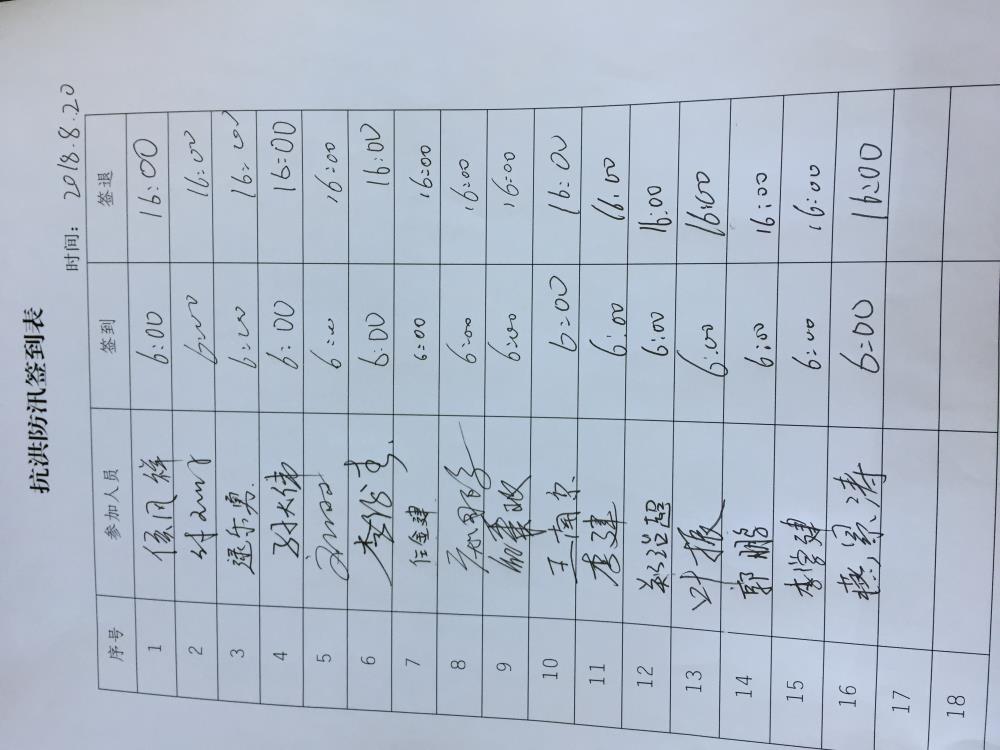 抗洪防汛签到表
时间：2018.8.20
序号 参加人员 签到 签退
1 侯风祥 6:00 16:00
2 6:00 16:00
3 逯尔勇 6:00 16:00
4 孙大伟 6:00 16:00
5 6:00 16:00
6 6:00 16:00
7 任金建 6:00 16:00
8 6:00 16:00
9 6:00 16:00
10 王南京 6:00 16:00
11 唐建 6:00 16:00
12 6:00 16:00
13 叶振 6:00 16:00
14 郭鹏 6:00 16:00
15 李学建 6:00 16:00
16 6:00 16:00
17
18